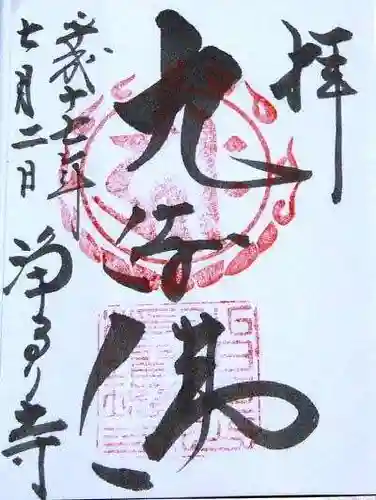 拝
九体佛
平成十七年
七月二日
浄るり寺